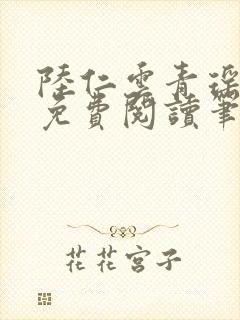 陸仁雲青瑤
免費閱讀筆
花花宮子